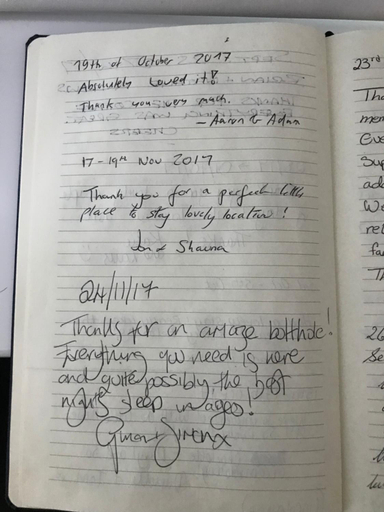 19th of October 2017
Absolutely Loved it!
Thank you very much.
- Aaron & Adam
17-19th Nov 2017
Thank you for a perfect little
place to stay lovely location!
Jon & Shauna
24/11/17
Thanks for an bolthole!
Everything you need is here
and quite possibly the best
nights sleep in ages!
23rd
Tha
mem
Eve
Sup
ado
We
rel
fa
Th
26
Se